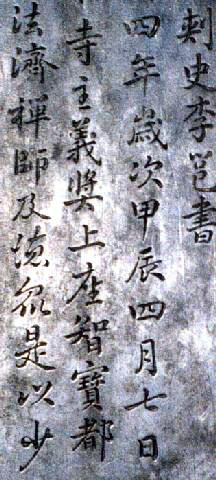 刺史李邕書
四年歲次甲辰四月七日
寺主義奬上座智寶都
法濟禪師及眾是以少